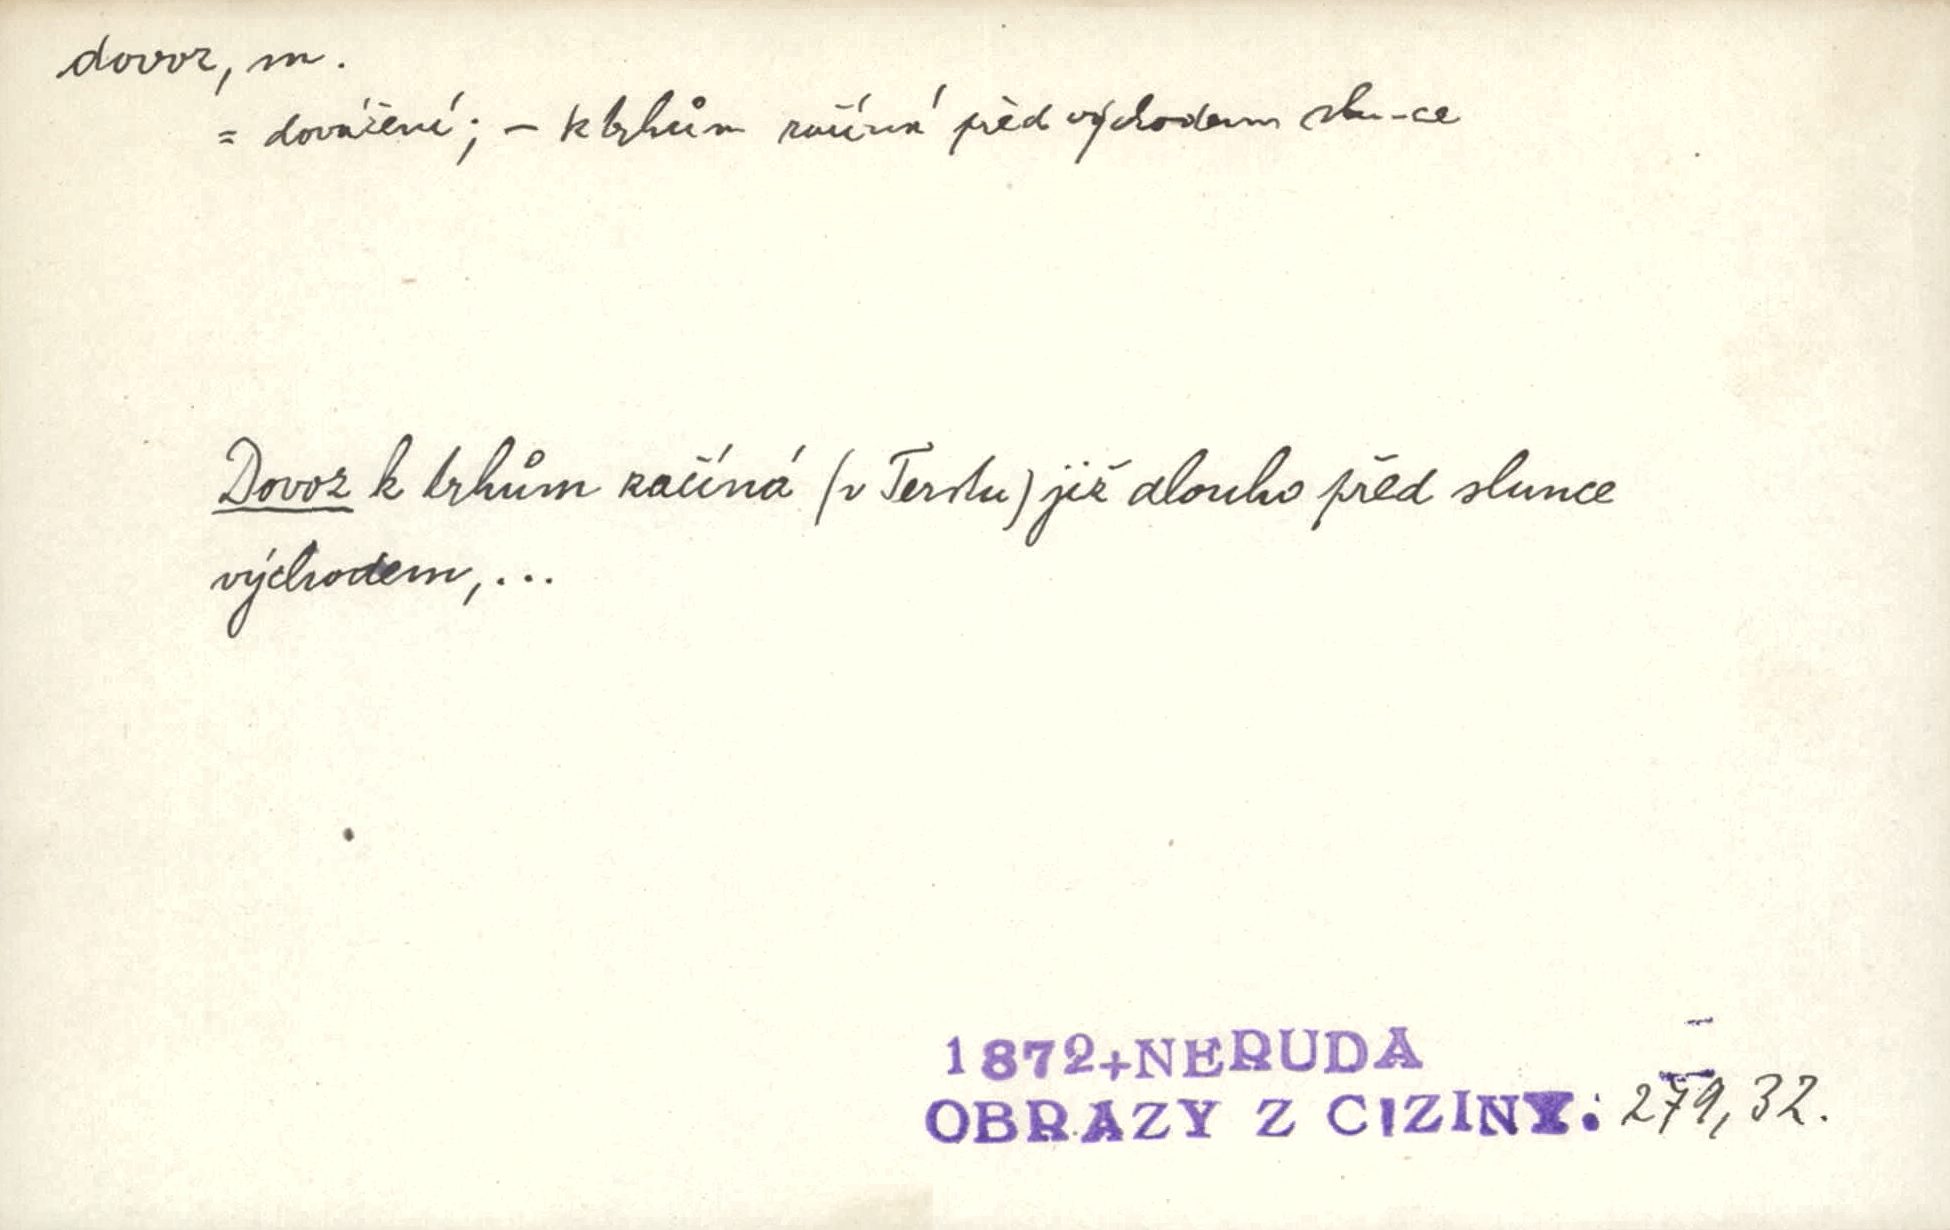 dovoz, m.
= dovážení; – k trhům začíná před východem slunce
Dovoz k trhům začíná (v Terstu) již dlouho před slunce
východem, ...
1872+NERUDA
OBRAZY Z CIZINY: 279, 32.